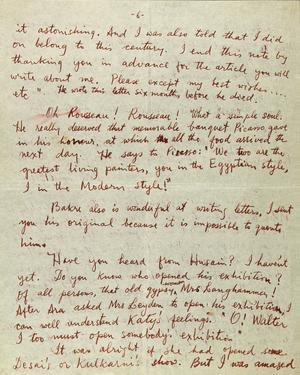 -6-
it astonishing. And I was also told that I did
on belong to this century. I end this note by
thanking you in advance for the article you will
write about me. Please except my best wishes....
etc". He wrote this letter six months before he died.
Oh Rousseau! Rousseau! What a simple soul.
He really deserved that memorable banquet Picasso gave
in his honour, at which all the food arrived the
next day. He says to Picasso: "We two are the
greatest living painters, you in the Egyptian style,
I in the Modern style!"
Bakre also is wonderful at writing letters, I sent
you his original because it is impossible to quote
him.
Have you heard from Husain? I havent
yet. Do you know who opened his exhibition?
Of all persons, that old gypsy woman Mrs Langhammer!
After Ara asked Mrs Leyden to open his exhibition, I
can well understand Katy's feelings. "O! Walter
I too must open somebody exhibition"
It was alright if she had opened some
Desai's or Kulkarni's show. But I was amazed